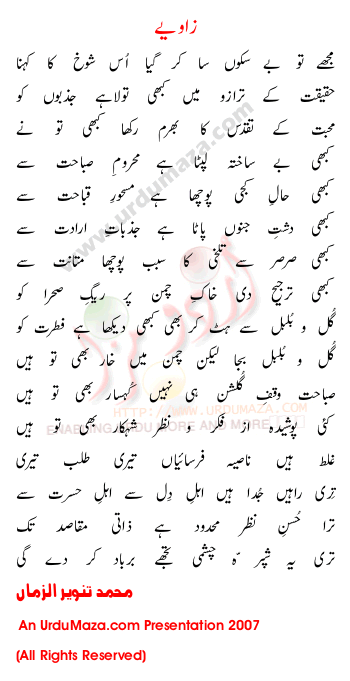 زاویے
مجھے تو بے سکوں سا کر گیا اُس شوخ کا کہنا
حقیقت کے ترازو میں کبھی تولا ہے جذبوں کو
محبت کے تقدّس کا بھرم رکھا کبھی تو نے
کبھی بے ساختہ لپٹا ہے محرومِ صباحت سے
کبھی حالِ کجی پوچھا ہے مسحورِ قباحت سے
کبھی دشتِ جنوں پاٹا ہے جذباتِ ارادت سے
کبھی صرصر سے تلخی کا سبب پوچھا متانت سے
کبھی ترجیح دی خاکِ چمن پر ریگِ صحرا کو
گُل و بُلبل سے ہٹ کر بھی کبھی دیکھا ہے فطرت کو
گُل و بُلبل بجا لیکن چمن میں خار بھی تو ہیں
صباحت وقفِ گلشن ہی نہیں کُہسار بھی تو ہیں
کئی پوشیدہ از فکر و نظر شہکار بھی تو ہیں
غلط ہیں ناصیہ فرسائیاں تیری طلب تیری
تری راہیں جُدا ہیں اہلِ دِل سے اہلِ حسرت سے
ترا حُسنِ نظر محدود ہے ذاتی مقاصد تک
تری یہ شپرہ چشمی تجھے برباد کر دے گی
محمد تنویر الزماں
An UrduMaza.com Presentation 2007
(All Rights Reserved)
www.urdumaza.com
HTTP://WWW.URDUMAZA.COM